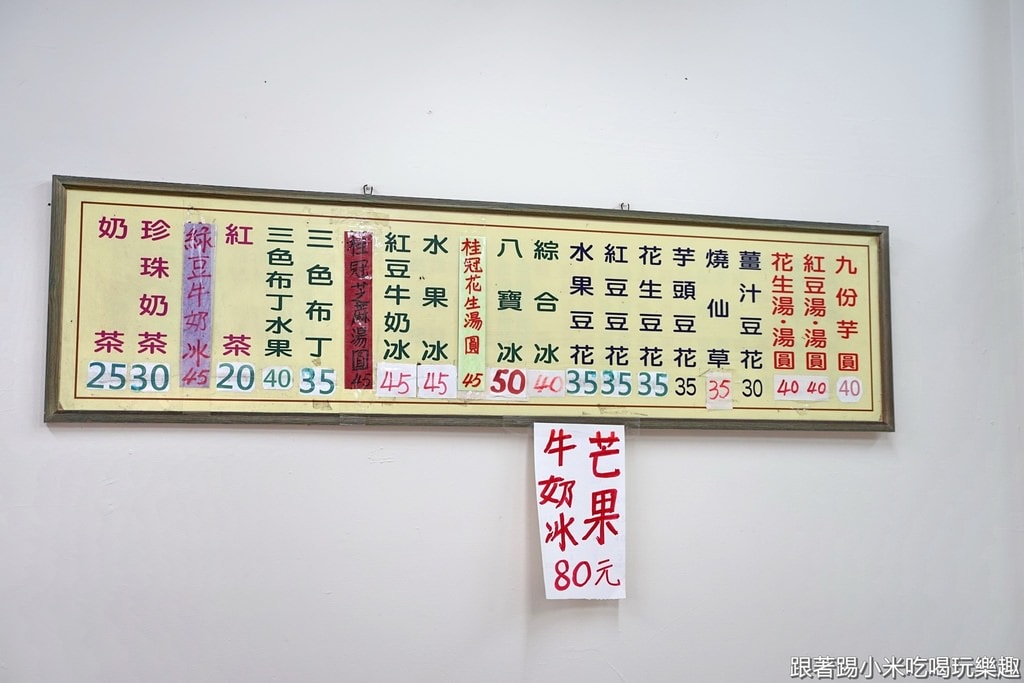 九份芋圓 40
紅豆湯．湯圓 40
花生湯．湯圓 40
薑汁豆花 30
燒仙草 35
芋頭豆花 35
花生豆花 35
紅豆豆花 35
水果豆花 35
綜合冰 40
八寶冰 50
桂冠花生湯圓 45
水果冰 45
紅豆牛奶冰 45
桂冠芝麻湯圓 45
三色布丁 35
三色布丁水果 40
紅茶 20
綠豆牛奶冰 45
珍珠奶茶 30
奶茶 25
芒果
牛奶冰
80元
跟著踢小米吃喝玩樂趣